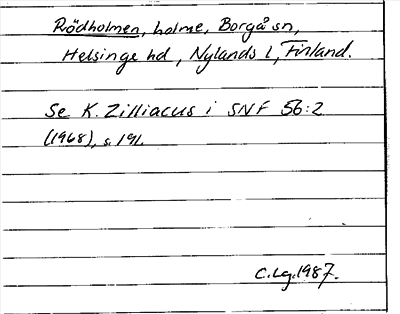 Rödholmen, holme, Borgå sn,
Helsinge hd, Nylands l, Finland.
Se K. Zilliacus i SNF 56:2
(1968), s. 191.
C.Lg.1987.